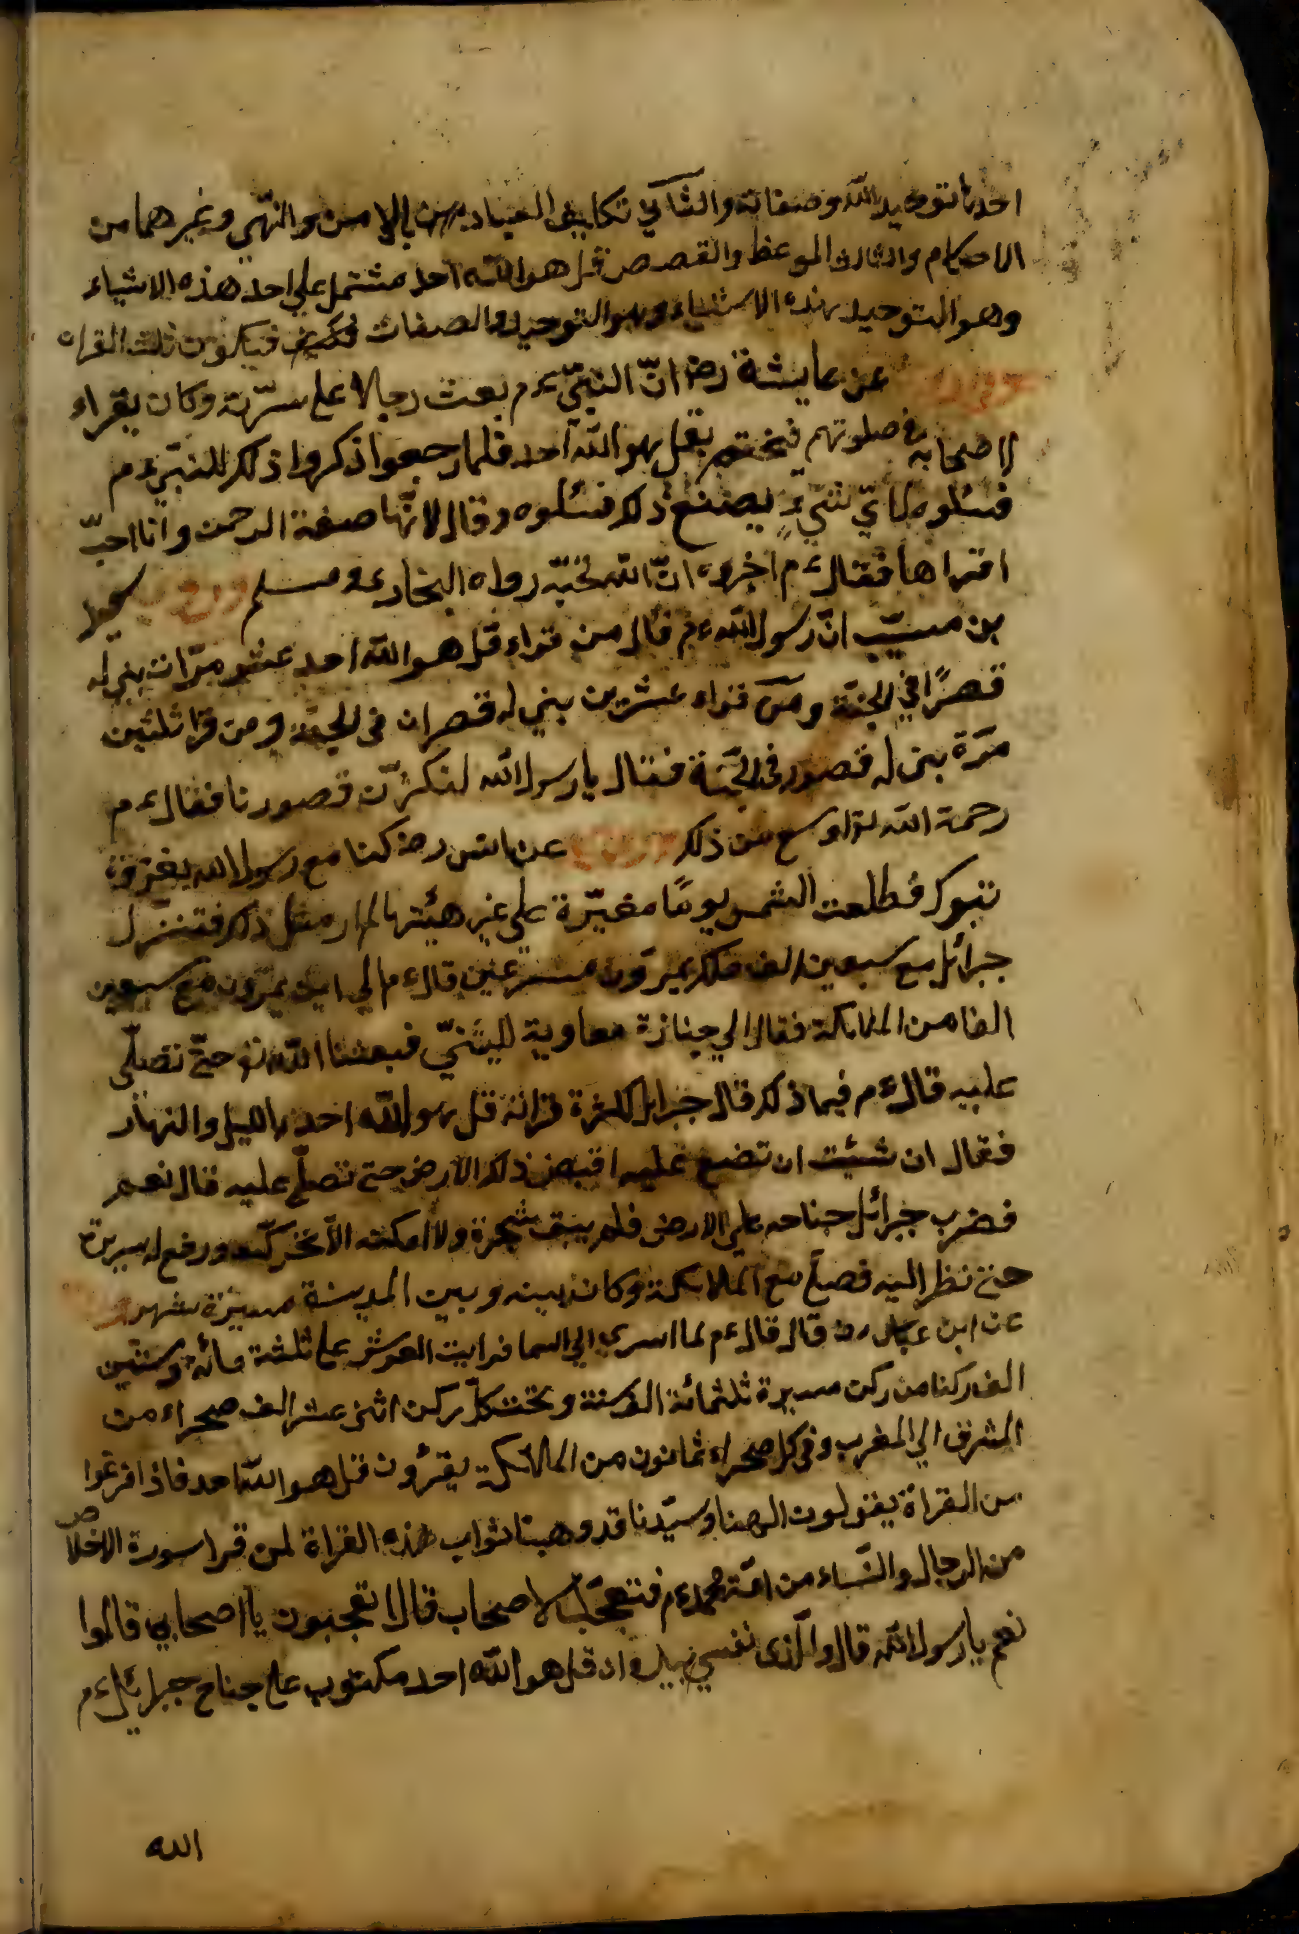 احدها توحيد الله وصفاته والثاني تكاليف العباد من الامر والنهي وغيرهما من
الاحكام والثالث المواعظ والقصص قل هو الله احد مشتمل علي احد هذه الاشياء
وهو التوحيد هذه الاشياء وهو التوحيد والصفات فيكون ثلث القران
عن عايشة رض انّ النبيّ ءم بعث رجالا على سرّية وكان يقراء
لاصحابه في صلوتهم فيختم بقل هو الله احد فلما رجعوا ذكروا ذكر للنبيّ ءم
فسئلوه لايّ شيءٍ يصنع ذلك فسئلوه وقال لانّها صفة الرحمن وانا احبّ
اقراها فقال ءم اخبروه انّ الله يحبّه رواه البخارى ومسلم وروى سعيد
بن مسيّب انّ رسول الله ءم قال من قراء قل هو الله احد عشر مرّات بني له
قصرًا في الجنّة ومن قراء عشرين بني له قصران في الجنّة ومن قرا ثلثين
مرّة بني له قصور في الجنّة فقال يا رسول الله لنكثرّن قصورنا فقال ءم
رحمة الله اوسع من ذلك عن انس رض كنا مع رسول الله بغزوة
تبوك فطلعت الشمس يومًا مغيّرة علي غير هيئتها لم ار مثل ذلك فتنزل
جبرائل مع سبعين الف ملك يمرّون مسرعين قال ءم الي اين يمرّون مع سبعين
الفا من الملائكة فقال الي جنازة معاوية الليثيّ فبعثنا الله تع حتّى نصلّى
عليه قال ءم فيما ذلك قال جبرايل لكثرة قرائة قل هو الله احد بالليل والنهار
فقال ان شئيت ان تضع عليه اقبض ذلك الارض حتى تصلّي عليه قال نعم
فضرب جبرائل جناحه علي الارض فلم يبق شجرة ولا امكنه الّا تحركت ورفع له سريره
حتى نظر اليه فصلّى مع الملائكة وكان بينه وبين المدينة مسيرة شهر
عن ابن عباس رض قال قال ءم لما اسرى الي السما فرايت العرش على ثلثة مائة وستين
الف ركنا من ركن مسيرة ثلثمائة الف سنة وتحت كلّ ركن اثنى عشر الف صحراء من
المشرق الي المغرب وفي كل صحراء ثمانون من الملائكة يقرؤن قل هو الله احد فاذا فرغوا
من القراة يقولون الهنا وسيّدنا قد وهبنا ثواب هذه القراة لمن قرا سورة الاخلاص
من الرجال والنّساء من امّة محمّد ءم فتعجّب الاصحاب قال اتعجبون يا اصحابي قالوا
نعم يا رسول الله قال والّذى نفسي بيده ان قل هو الله احد مكتوب على جناح جبرائيل ءم
الله